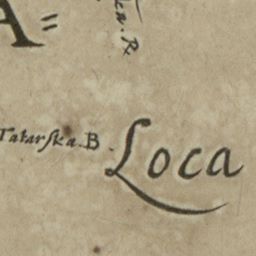 A=
ka. R
Tatarſka. B.
Loca